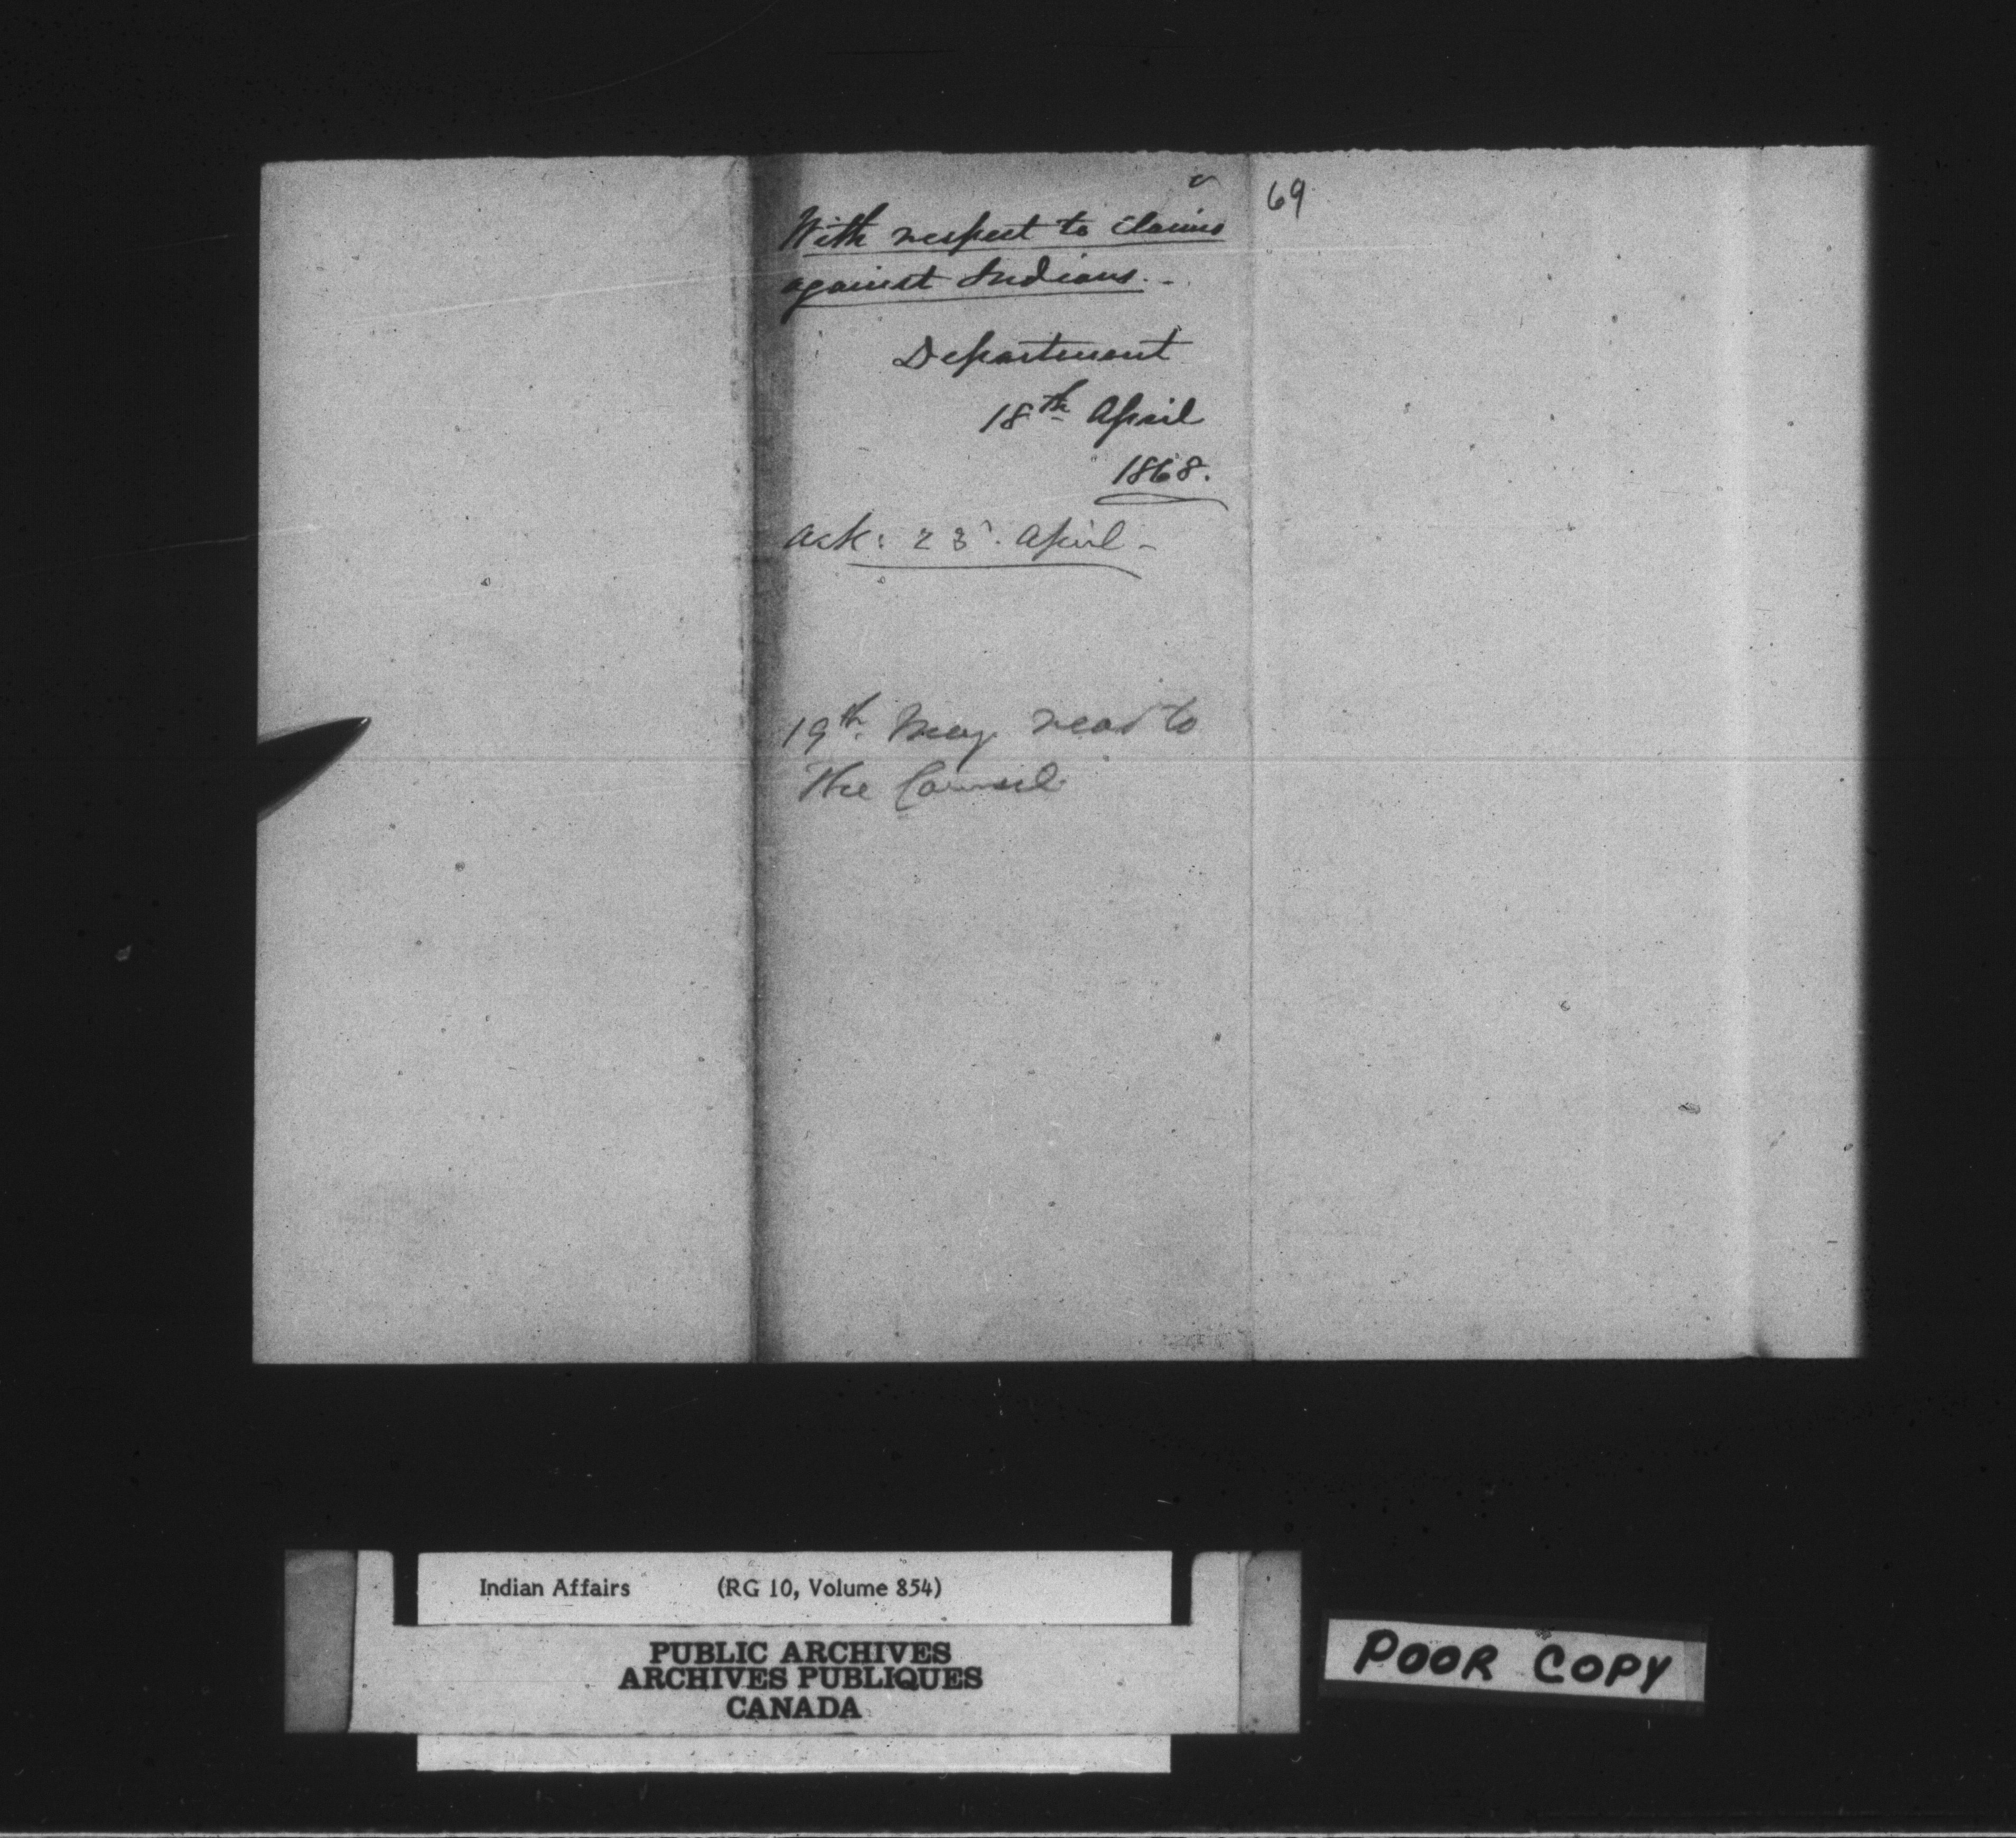 69
With respect to Claims
against Indians.-
Department
18th April
1868.
Ack: 23d. April -
19th May read to
The Council
Indian Affairs (RG 10, Volume 854)
PUBLIC ARCHIVES
ARCHIVES PUBLIQUES
CANADA
POOR COPY